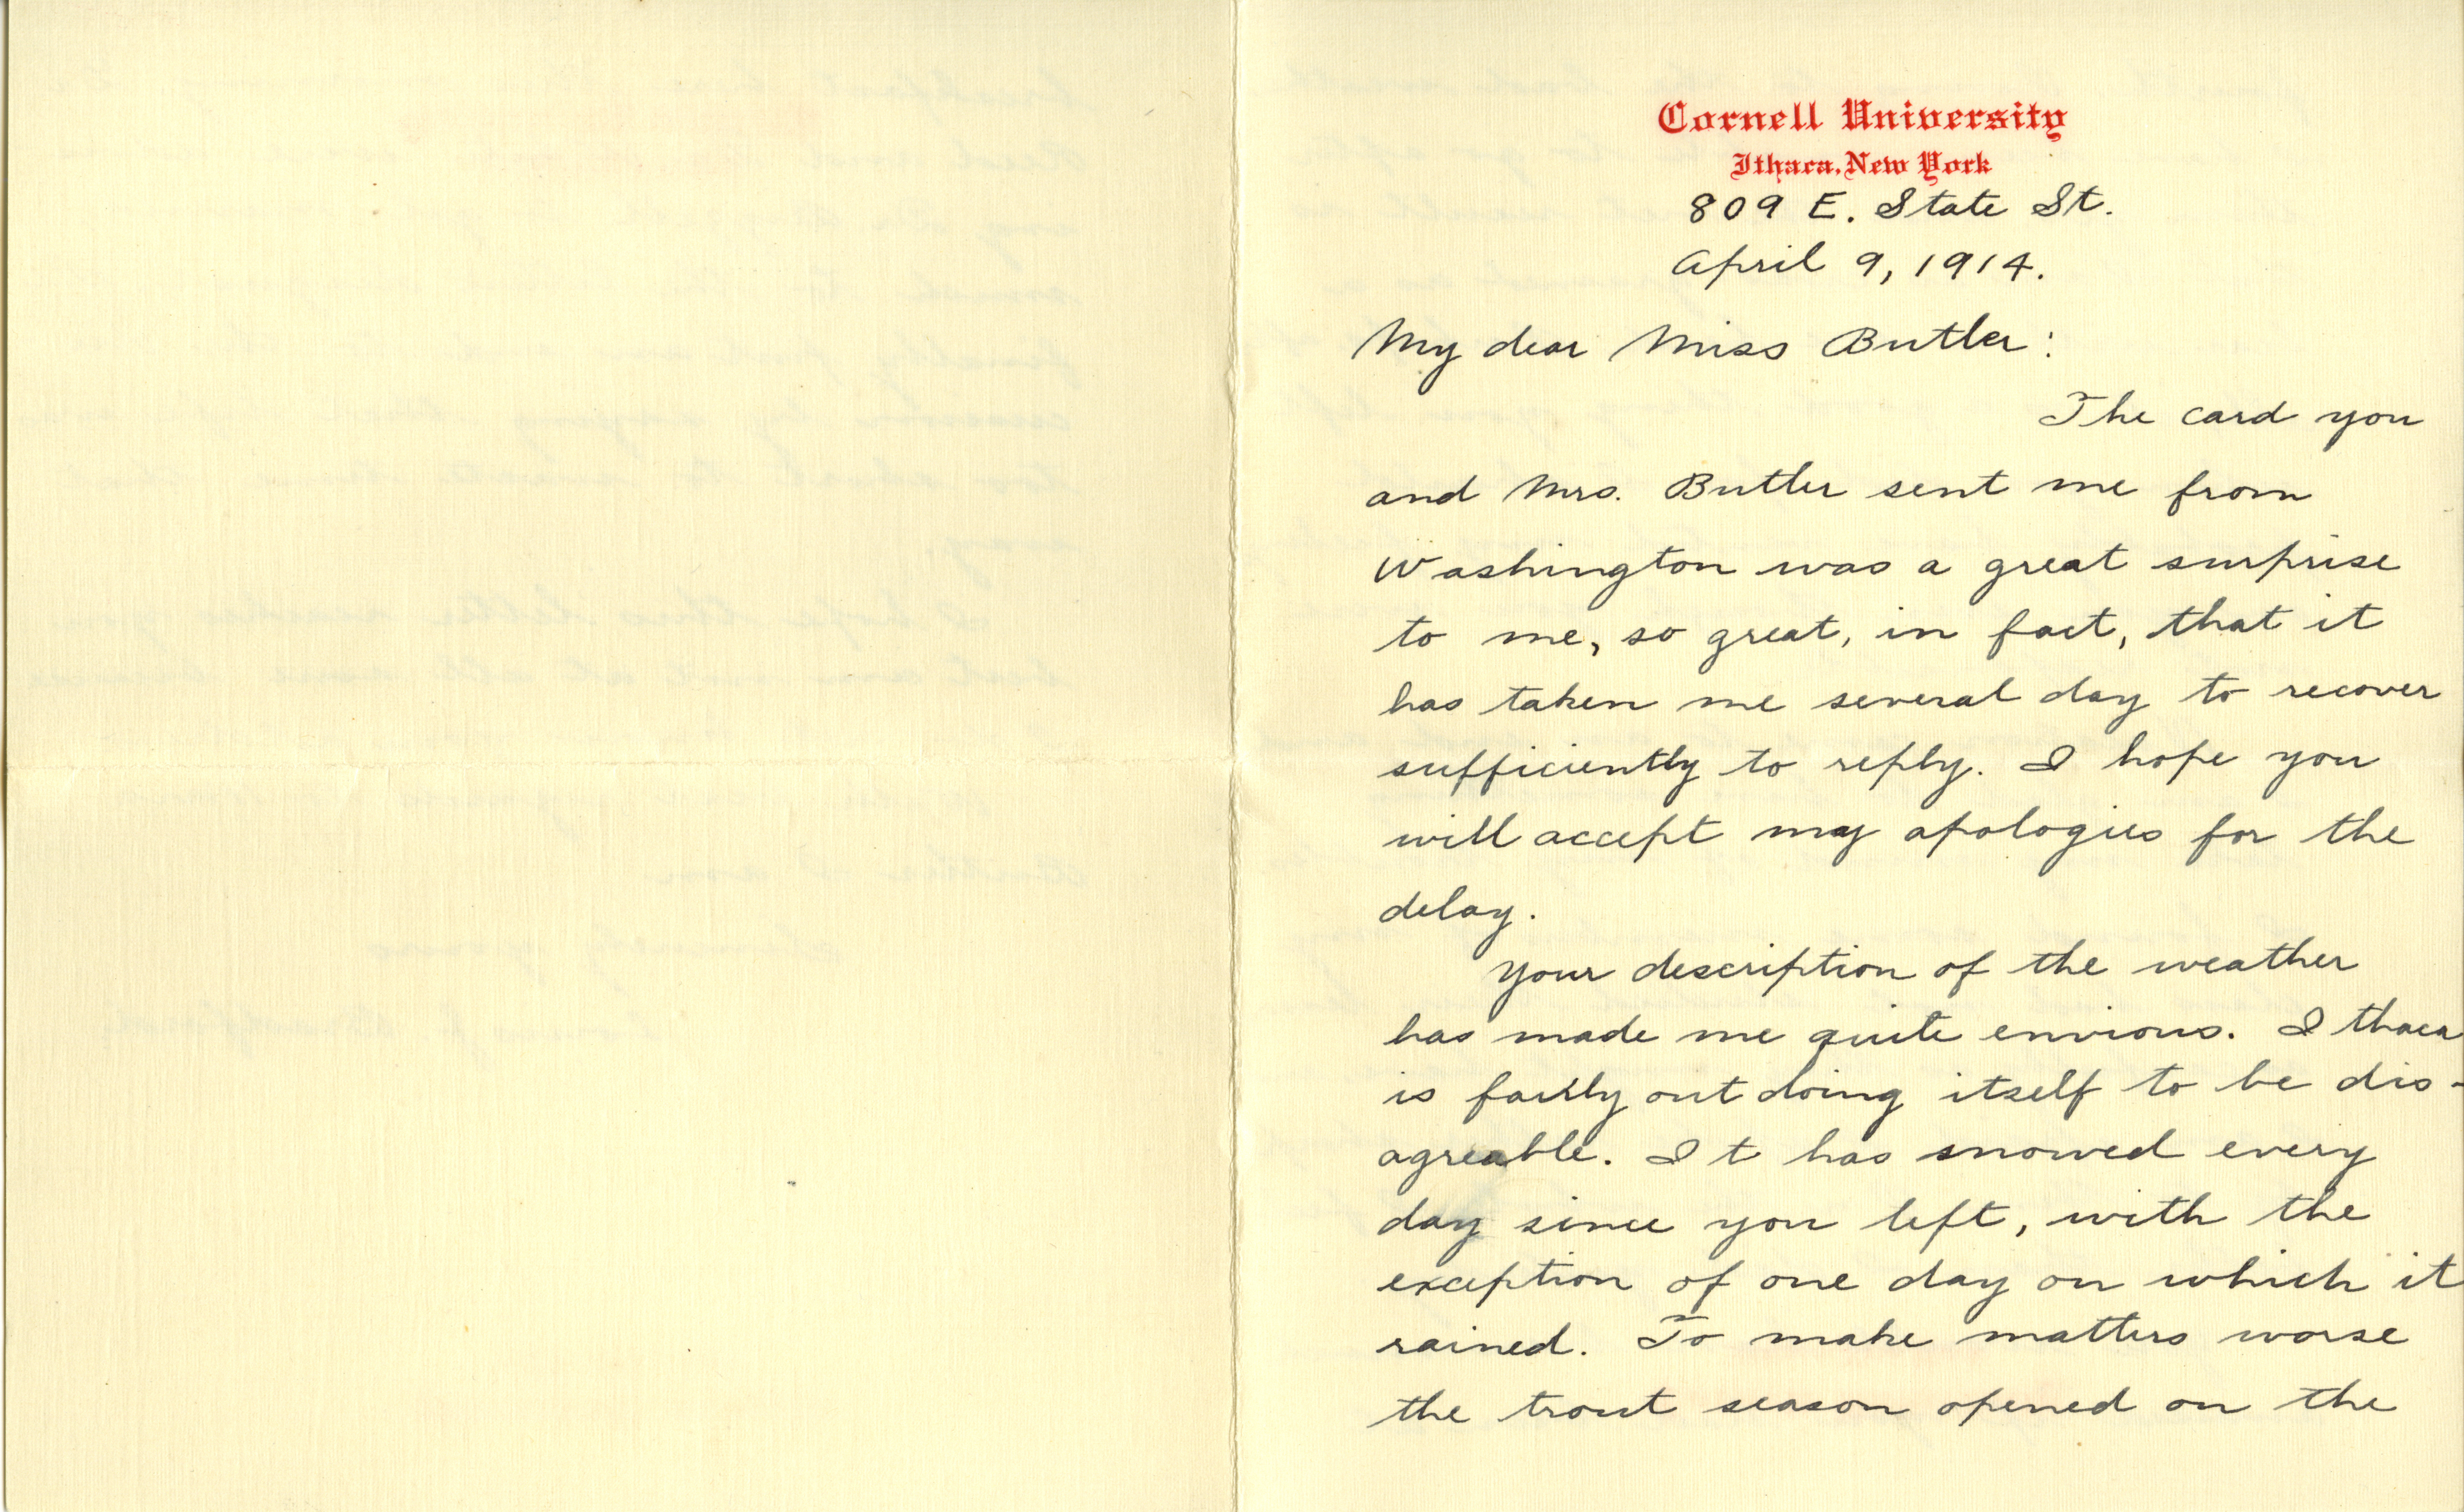 Cornell University
Ithaca, New York
809 E. State St.
April 9, 1914.
My dear Miss Butler:
The card you
and Mrs. Butler sent me from
Washington was a great surprise
to me, so great, in fact, that it
has taken me several day to recover
sufficiently to reply. I hope you
will accept my apologies for the
delay.
Your description of the weather
has made me quite envious. Ithaca
is fairly out doing itself to be dis-
agreable. It has snowed every
day since you left, with the
exception of one day on which it
rained. To make matters worse
the trout season opened on the